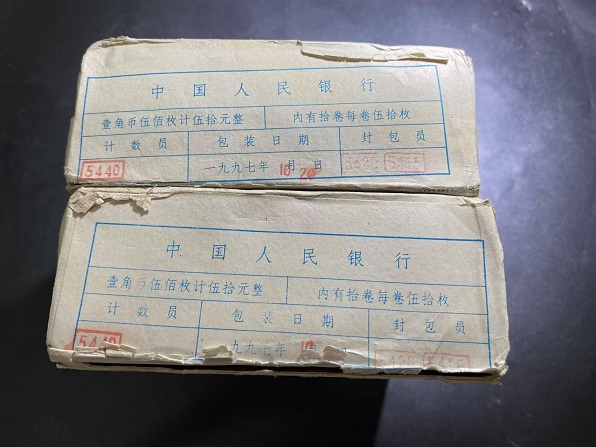 中国人民银行
壹角币伍佰枚计伍拾元整 内有拾卷每卷伍拾枚
计数员 包装日期 封包员
5440 一九九七年10月20日 5415
中国人民银行
壹角币伍佰枚计伍拾元整 内有拾卷每卷伍拾枚
计数员 包装日期 封包员
5440 九九七年10 5415